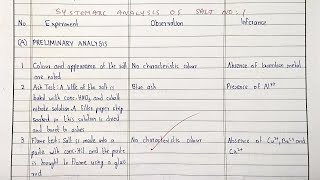 SYSTEMATIC ANALYSIS OF SALT NO: 1
No Experiment Observation Inference
(A) PRELIMINARY ANALYSIS
1 Colour and appearance of the salt No characteristic colour Absence of transition metal
are noted
2 Ash Test: A little of the salt is Blue ash Presence of Al3+
heated with conc.HNO3 and cobalt
nitrate solution. A filter paper strip
soaked in this solution is dried
and burnt to ashes
3 Flame test: Salt is made into a No characteristic colour Absence of Cu2+, Ba2+ and
paste with conc.Hcl and the paste Ca2+
is brought to flame using a
glass rod.